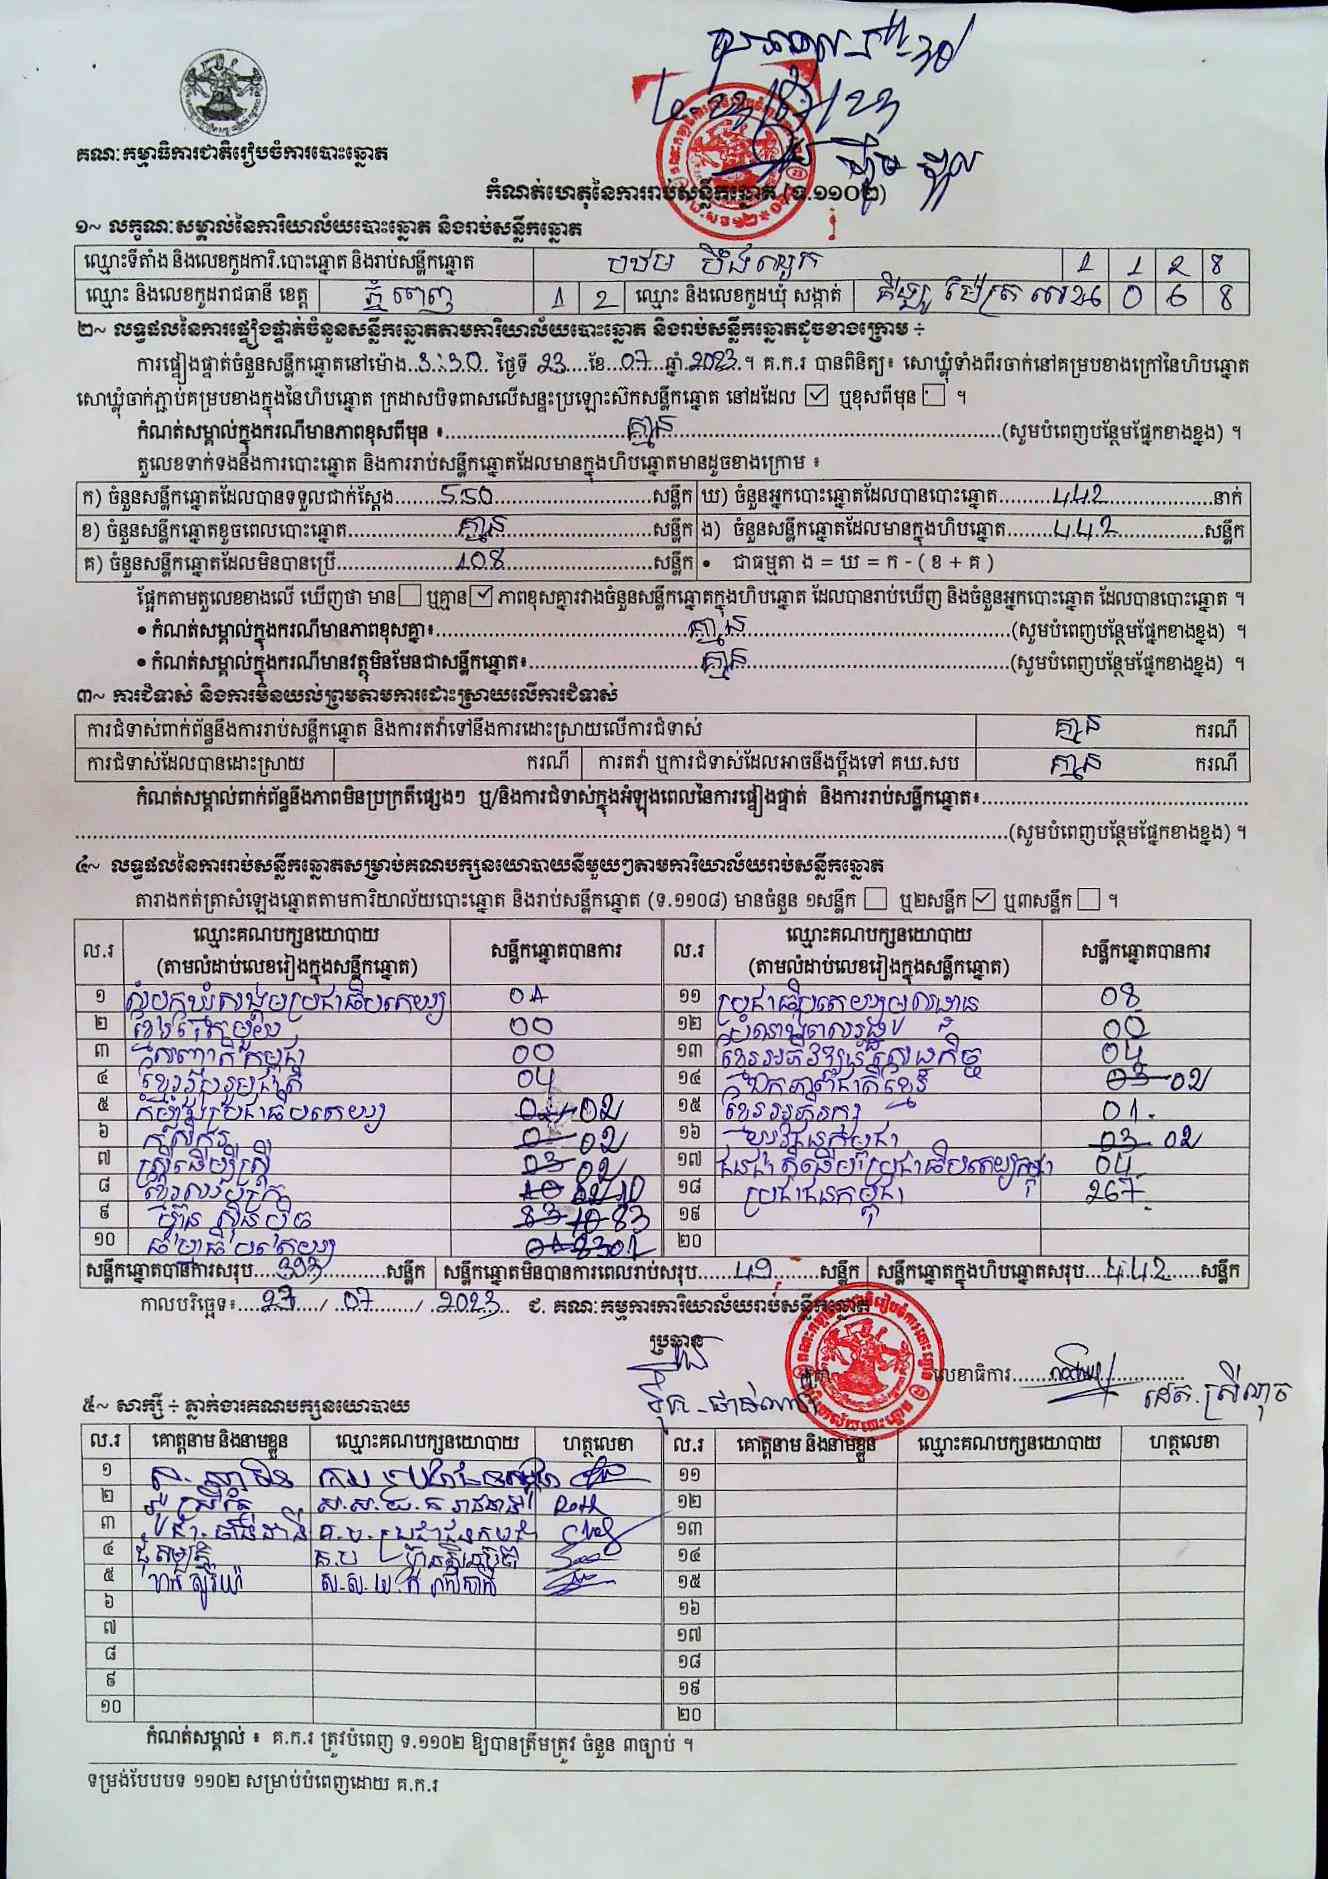 គណៈកម្មាធិការជាតិរៀបចំការបោះឆ្នោត
កំណត់ហេតុនៃការរាប់សន្លឹកឆ្នោត (ទ.១១០២)
១~ លក្ខណៈសម្គាល់នៃការិយាល័យបោះឆ្នោត និងរាប់សន្លឹកឆ្នោត
ឈ្មោះទីតាំង និងលេខកូដការិ.បោះឆ្នោត និងរាប់សន្លឹកឆ្នោត 1 1 2 8
ឈ្មោះ និងលេខកូដរាជធានី ខេត្ត ភ្នំពេញ 1 2 ឈ្មោះ និងលេខកូដឃុំ សង្កាត់ 0 6 8
២~ លទ្ធផលនៃការផ្ទៀងផ្ទាត់ចំនួនសន្លឹកឆ្នោតតាមការិយាល័យបោះឆ្នោត និងរាប់សន្លឹកឆ្នោតដូចខាងក្រោម ÷
ការផ្ទៀងផ្ទាត់ចំនួនសន្លឹកឆ្នោតនៅម៉ោង..3:30.. ថ្ងៃទី 23....ខែ...07...ឆ្នាំ.2023.។ គ.ក.រ បានពិនិត្យ៖ សោឃ្លុំទាំងពីរចាក់នៅគម្របខាងក្រៅនៃហិបឆ្នោត
សោឃ្លុំចាក់ភ្ជាប់គម្របខាងក្នុងនៃហិបឆ្នោត ក្រដាសបិទពាសលើសន្ទះប្រឡោះស៊កសន្លឹកឆ្នោត នៅដដែល ☑ ឬខុសពីមុន ☐ ។
កំណត់សម្គាល់ក្នុងករណីមានភាពខុសពីមុន ៖ គ្មាន (សូមបំពេញបន្ថែមផ្នែកខាងខ្នង) ។
តួលេខទាក់ទងនឹងការបោះឆ្នោត និងការរាប់សន្លឹកឆ្នោតដែលមានក្នុងហិបឆ្នោតមានដូចខាងក្រោម ៖
ក) ចំនួនសន្លឹកឆ្នោតដែលបានទទួលជាក់ស្តែង 550 សន្លឹក ឃ) ចំនួនអ្នកបោះឆ្នោតដែលបានបោះឆ្នោត 442 នាក់
ខ) ចំនួនសន្លឹកឆ្នោតខូចពេលបោះឆ្នោត គ្មាន សន្លឹក ង) ចំនួនសន្លឹកឆ្នោតដែលមានក្នុងហិបឆ្នោត 442 សន្លឹក
គ) ចំនួនសន្លឹកឆ្នោតដែលមិនបានប្រើ 108 សន្លឹក • ជាធម្មតា ង = ឃ = ក - ( ខ + គ )
ផ្អែកតាមតួលេខខាងលើ ឃើញថា មាន ☐ ឬគ្មាន ☑ ភាពខុសគ្នារវាងចំនួនសន្លឹកឆ្នោតក្នុងហិបឆ្នោត ដែលបានរាប់ឃើញ និងចំនួនអ្នកបោះឆ្នោត ដែលបានបោះឆ្នោត ។
• កំណត់សម្គាល់ក្នុងករណីមានភាពខុសគ្នា៖ គ្មាន (សូមបំពេញបន្ថែមផ្នែកខាងខ្នង) ។
• កំណត់សម្គាល់ក្នុងករណីមានវត្ថុមិនមែនជាសន្លឹកឆ្នោត៖ គ្មាន (សូមបំពេញបន្ថែមផ្នែកខាងខ្នង) ។
៣~ ការជំទាស់ និងការមិនយល់ព្រមតាមការដោះស្រាយលើការជំទាស់
ការជំទាស់ពាក់ព័ន្ធនឹងការរាប់សន្លឹកឆ្នោត និងការតវ៉ាទៅនឹងការដោះស្រាយលើការជំទាស់ គ្មាន ករណី
ការជំទាស់ដែលបានដោះស្រាយ ករណី ការតវ៉ា ឬការជំទាស់ដែលអាចនឹងប្តឹងទៅ គឃ.សប គ្មាន ករណី
កំណត់សម្គាល់ពាក់ព័ន្ធនឹងភាពមិនប្រក្រតីផ្សេងៗ ឬ/និងការជំទាស់ក្នុងអំឡុងពេលនៃការផ្ទៀងផ្ទាត់ និងការរាប់សន្លឹកឆ្នោត៖
(សូមបំពេញបន្ថែមផ្នែកខាងខ្នង) ។
៤~ លទ្ធផលនៃការរាប់សន្លឹកឆ្នោតសម្រាប់គណបក្សនយោបាយនីមួយៗតាមការិយាល័យរាប់សន្លឹកឆ្នោត
តារាងកត់ត្រាសំឡេងឆ្នោតតាមការិយាល័យបោះឆ្នោត និងរាប់សន្លឹកឆ្នោត (ទ.១១០៨) មានចំនួន ១សន្លឹក ☐ ឬ២សន្លឹក ☑ ឬ៣សន្លឹក ☐ ។
ល.រ ឈ្មោះគណបក្សនយោបាយ (តាមលំដាប់លេខរៀងក្នុងសន្លឹកឆ្នោត) សន្លឹកឆ្នោតបានការ ល.រ ឈ្មោះគណបក្សនយោបាយ (តាមលំដាប់លេខរៀងក្នុងសន្លឹកឆ្នោត) សន្លឹកឆ្នោតបានការ
១ សំបុកឃ្មុំសង្គមប្រជាធិបតេយ្យ 01 ១១ ប្រជាធិបតេយ្យមូលដ្ឋាន 08
២ ខ្មែរតែមួយ 00 ១២ 00
៣ សញ្ជាតិកម្ពុជា 00 ១៣ ខ្មែរអភិវឌ្ឍន៍សេដ្ឋកិច្ច 04
៤ ខ្មែររួបរួមជាតិ 04 ១៤ ឯកភាពជាតិខ្មែរ 02
៥ កម្លាំងប្រជាធិបតេយ្យ 02 ១៥ ខ្មែរអភិរក្ស 01
៦ កសិករ 02 ១៦ យុវជនកម្ពុជា 02
៧ ស្ត្រីដើម្បីស្ត្រី 02 ១៧ ជនជាតិដើមប្រជាធិបតេយ្យកម្ពុជា 04
៨ 10 ១៨ ប្រជាជនកម្ពុជា 267
៩ ហ៊្វុនស៊ិនប៉ិច 83 ១៩
១០ ធម្មាធិបតេយ្យ 01 ២០
សន្លឹកឆ្នោតបានការសរុប 393 សន្លឹក សន្លឹកឆ្នោតមិនបានការពេលរាប់សរុប 49 សន្លឹក សន្លឹកឆ្នោតក្នុងហិបឆ្នោតសរុប 442 សន្លឹក
កាលបរិច្ឆេទ៖ 23 / 07 / 2023 ជ. គណៈកម្មការការិយាល័យរាប់សន្លឹកឆ្នោត
ប្រធាន
លេខាធិការ
៥~ សាក្សី ÷ ភ្នាក់ងារគណបក្សនយោបាយ
ល.រ គោត្តនាម និងនាមខ្លួន ឈ្មោះគណបក្សនយោបាយ ហត្ថលេខា ល.រ គោត្តនាម និងនាមខ្លួន ឈ្មោះគណបក្សនយោបាយ ហត្ថលេខា
១ ១១
២ Roth ១២
៣ គ.ប.ប្រជាជនកម្ពុជា ១៣
៤ គ.ប ហ៊្វុនស៊ិនប៉ិច ១៤
៥ ១៥
៦ ១៦
៧ ១៧
៨ ១៨
៩ ១៩
១០ ២០
កំណត់សម្គាល់ ៖ គ.ក.រ ត្រូវបំពេញ ទ.១១០២ ឱ្យបានត្រឹមត្រូវ ចំនួន ៣ច្បាប់ ។
ទម្រង់បែបបទ ១១០២ សម្រាប់បំពេញដោយ គ.ក.រ